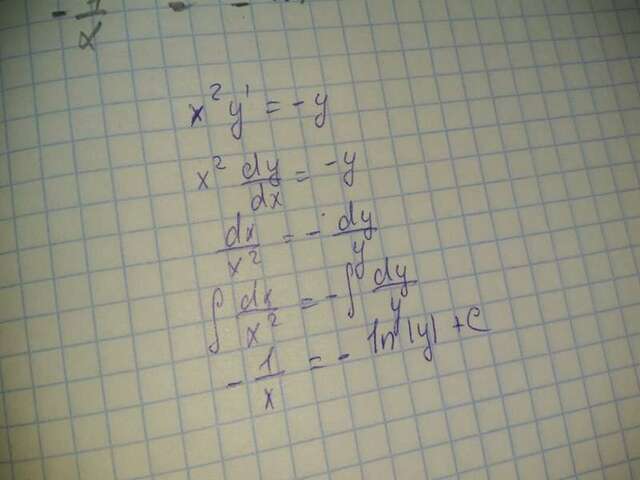 - 1/x - -
x² y' = - y
x² dy/dx = - y
dx/x² = - dy/y
∫ dx/x² = - ∫ dy/y
- 1/x = - ln |y| + C